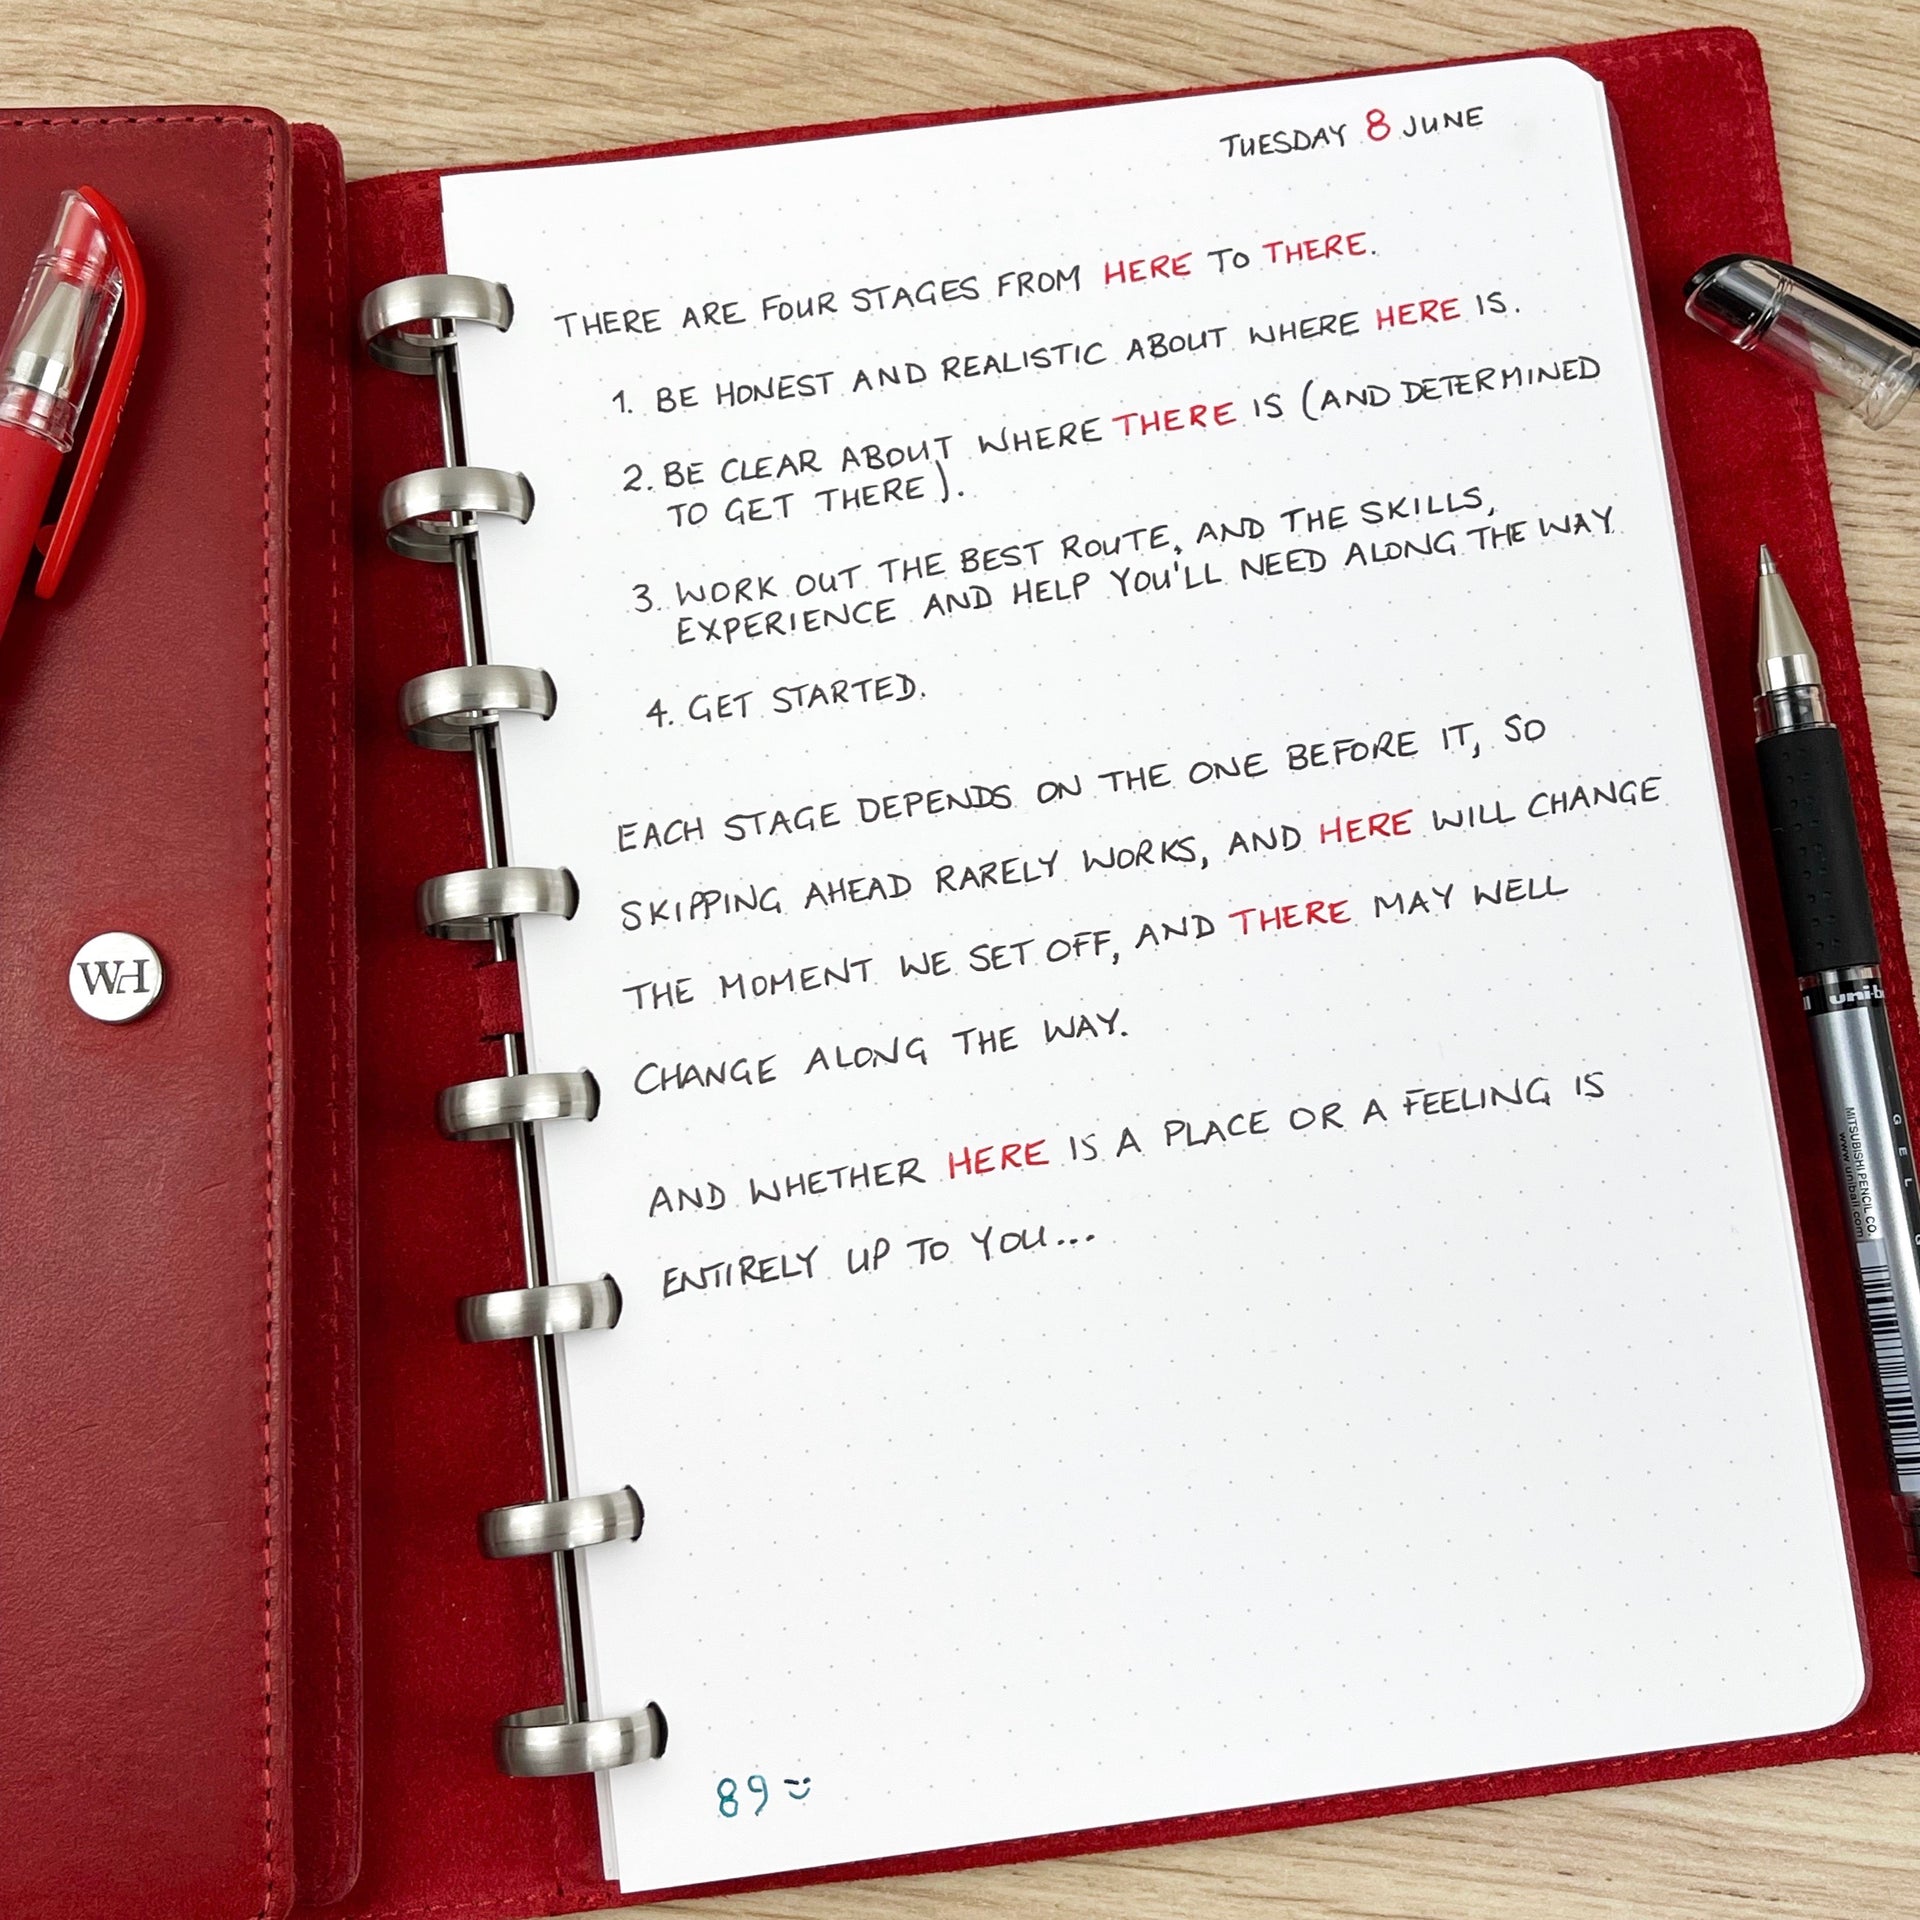 TUESDAY 8 JUNE
THERE ARE FOUR STAGES FROM HERE TO THERE.
1. BE HONEST AND REALISTIC ABOUT WHERE HERE IS.
2. BE CLEAR ABOUT WHERE THERE IS (AND DETERMINED
TO GET THERE).
3. WORK OUT THE BEST ROUTE, AND THE SKILLS,
EXPERIENCE AND HELP YOU'LL NEED ALONG THE WAY
4. GET STARTED.
EACH STAGE DEPENDS ON THE ONE BEFORE IT, SO
SKIPPING AHEAD RARELY WORKS, AND HERE WILL CHANGE
THE MOMENT WE SET OFF, AND THERE MAY WELL
CHANGE ALONG THE WAY.
AND WHETHER HERE IS A PLACE OR A FEELING IS
ENTIRELY UP TO YOU...
89
WH
uni-b
GEL
MITSUBISHI PENCIL CO.
www.uniball.com